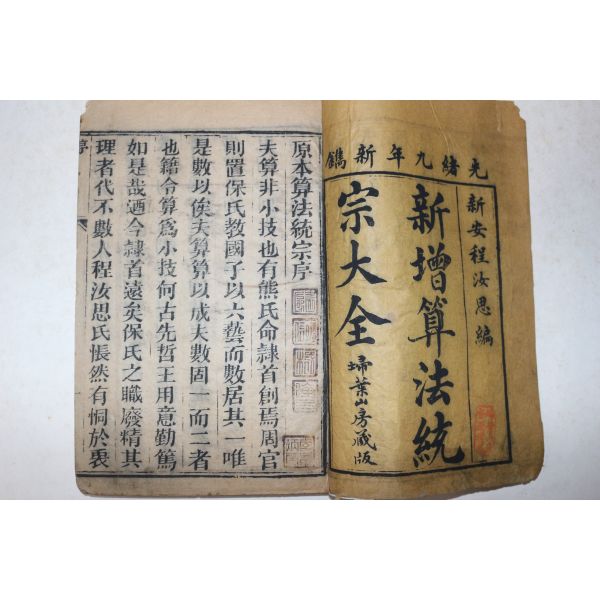 光緒九年新鐫
新安程汝思編
新增算法統
宗大全
埽葉山房藏版
原本算法統宗序
夫算非小技也有熊氏命隸首創焉周官
則置保氏教國子以六藝而數居其一唯
是數以俟夫算算以成夫數固一而二者
也籍令算爲小技何古先哲王用意勤篤
如是哉迺今隸首遠矣保氏之職廢精其
理者代不數人程汝思氏悵然有恫於衷